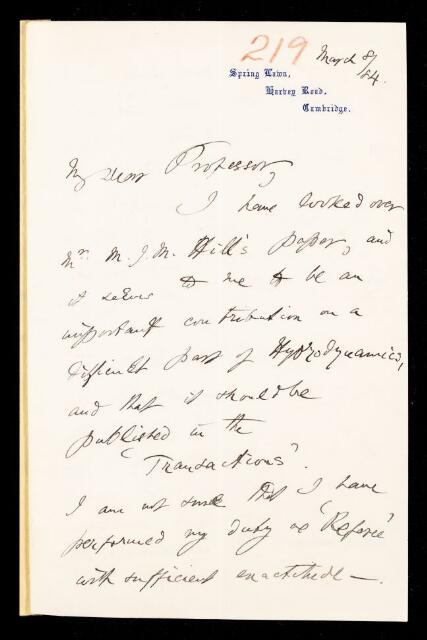 219 March 8/84.
Spring Lawn,
Harvey Road,
Cambridge.
My dear Professor,
I have looked over
Mr. M. J. M. Hill's paper, and
it seems to me to be an
important contribution on a
difficult part of Hydrodynamics,
and that it should be
published in the
'Transactions'.
I am not sure that I have
performed my duty as 'Referee'
with sufficient exactitude —.